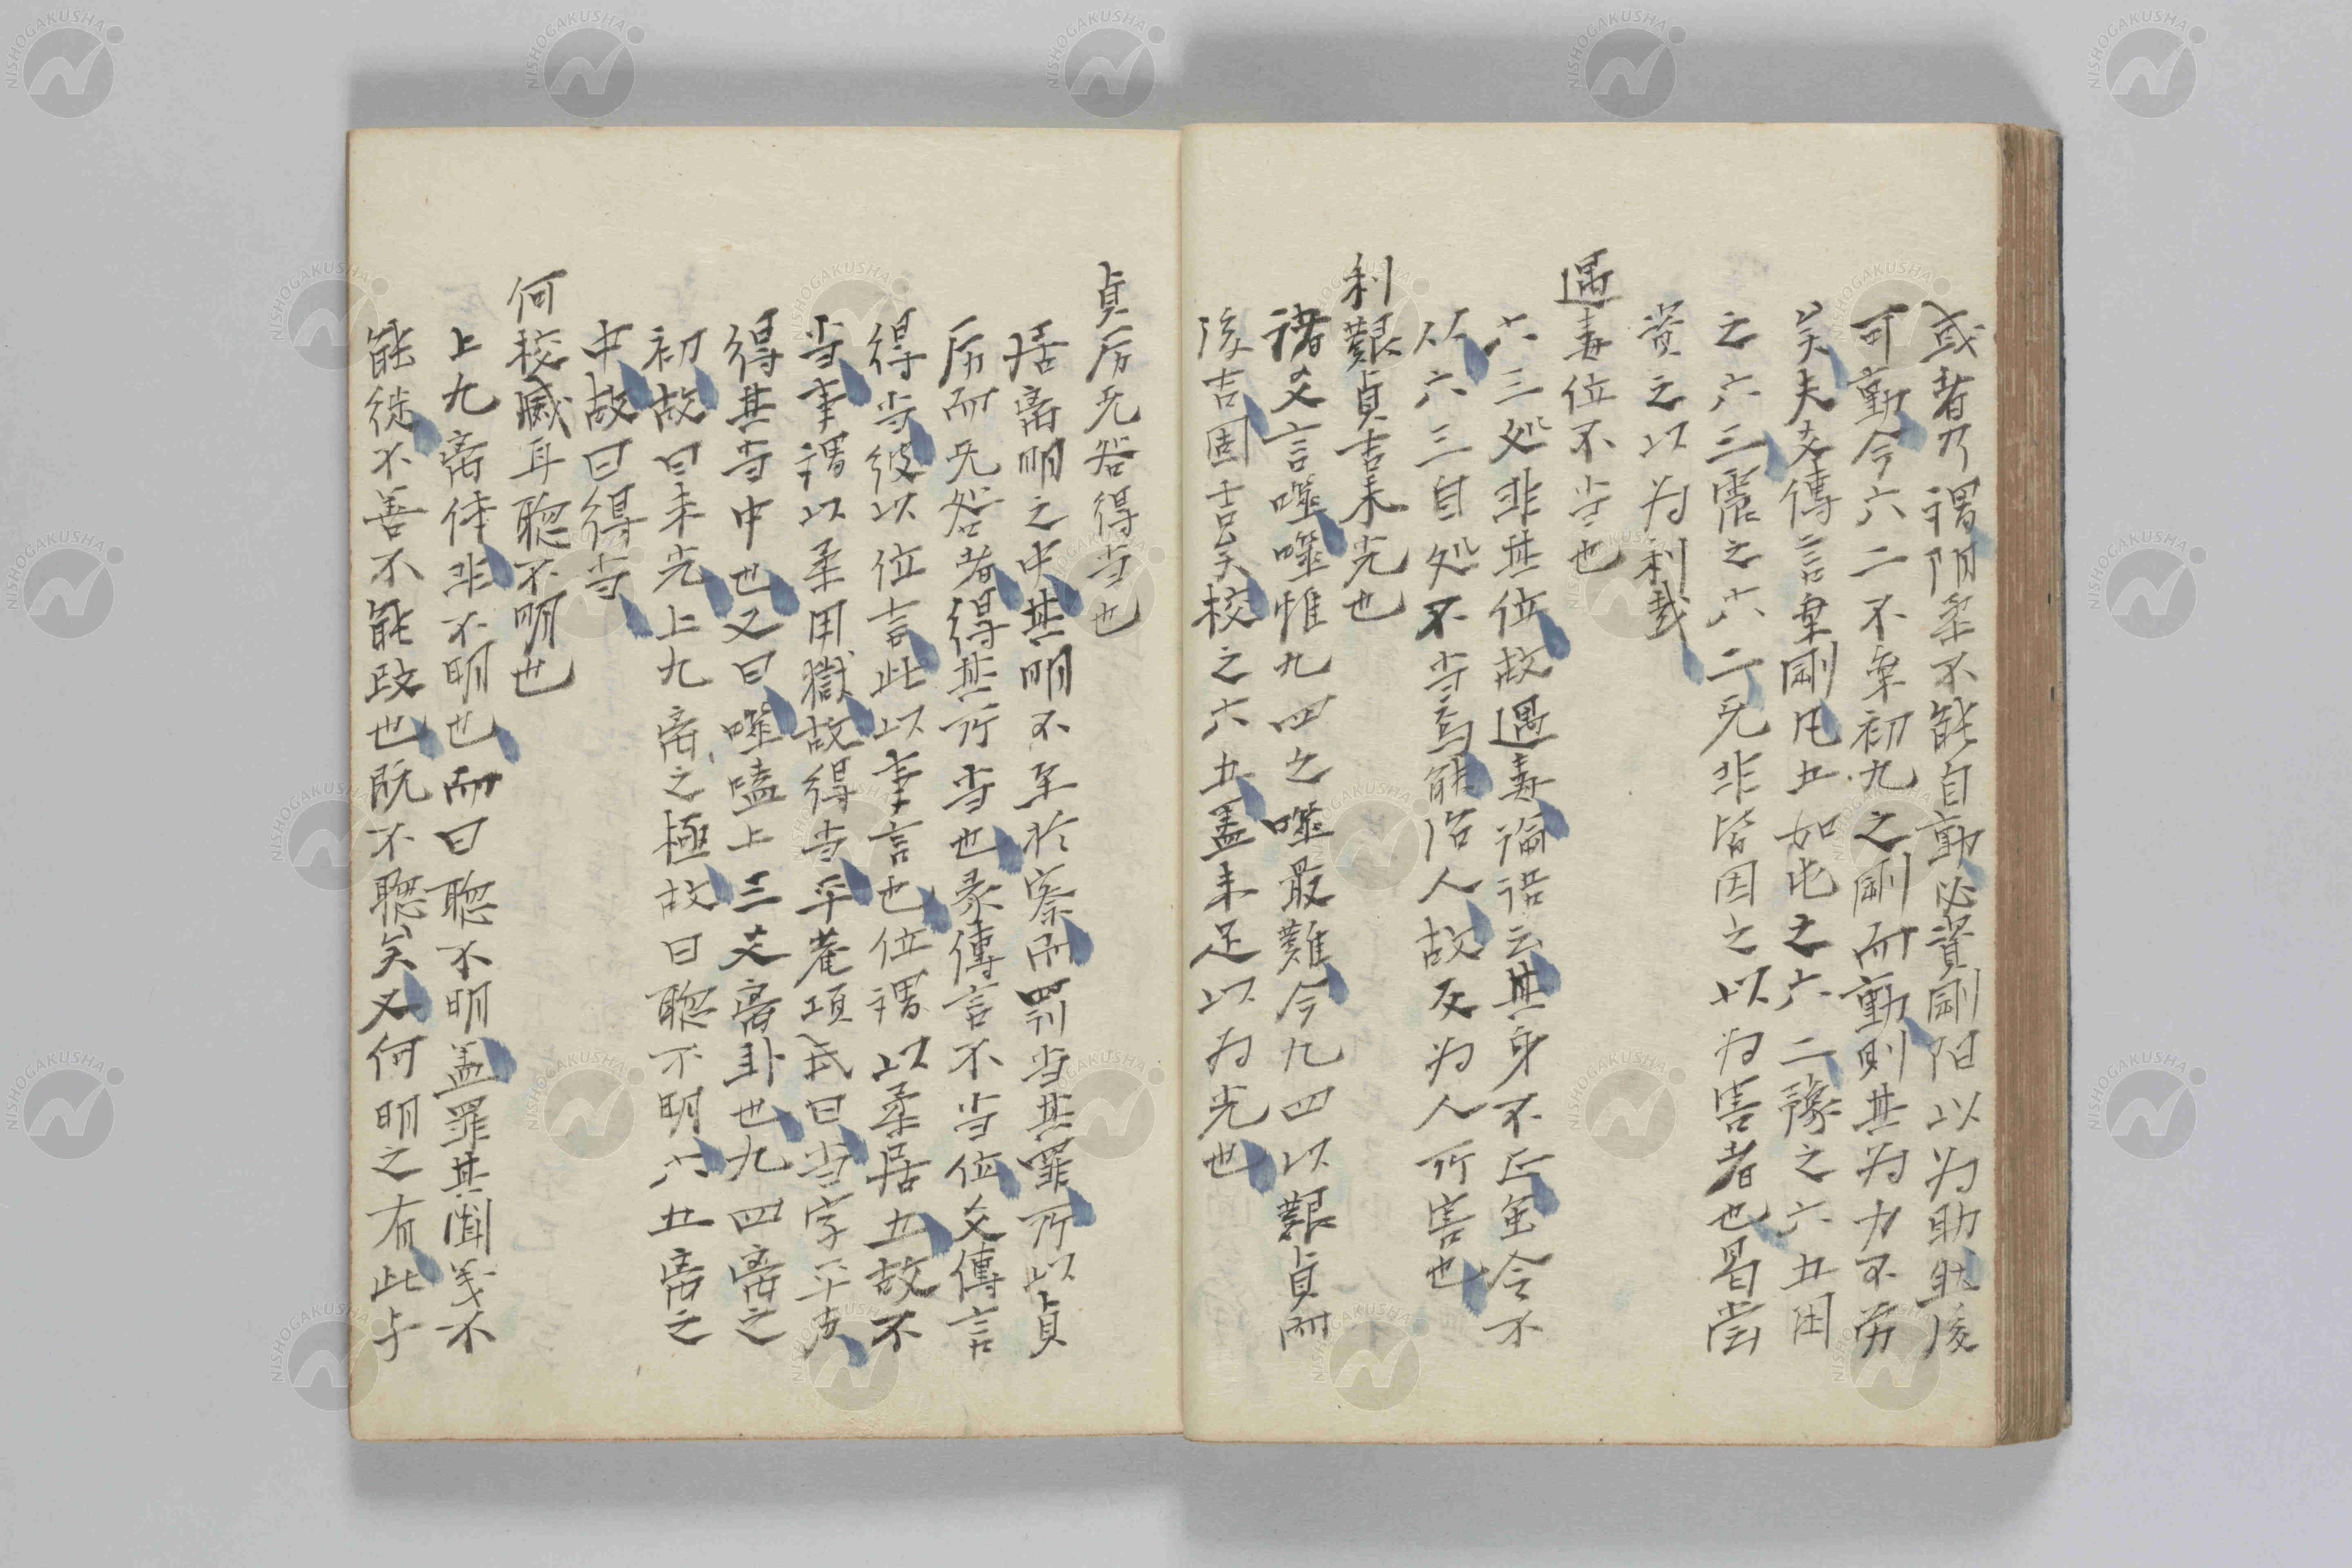 或者乃謂陰柔不能自動必資剛陽以为助然後
可動今六二不乗初九之剛而動則其为力不労
矣夫爻傳言乗剛凡五如屯之六二豫之六五困
之六三震之六二无非皆因之以为害者也曷嘗
資之以为利哉
遇毒位不当也
六三処非其位故遇毒論語云其身不正虽令不
从六三自処不当焉能治人故反为人所害也
利艱貞吉未光也
諸爻言噬噬惟九四之噬最難今九四以艱貞而
後吉固吉矣校之六五盖未足以为光也
貞厉无咎得当也
居离明之中其明不至於察而罰当其罪所以貞
厉而无咎者得其所当也彖傳言不当位爻傳言
得当彼以位言此以事言也位謂以柔居五故不
当事謂以柔用獄故得当平菴項氏曰当字平声
得其当中也又曰噬嗑上三爻离卦也九四离之
初故曰未光上九离之極故曰聡不明六五离之
中故曰得当
何校滅耳聡不明也
上九离体非不明也而曰聡不明盖罪其聞義不
能徙不善不能改也既不聡矣又何明之有此与